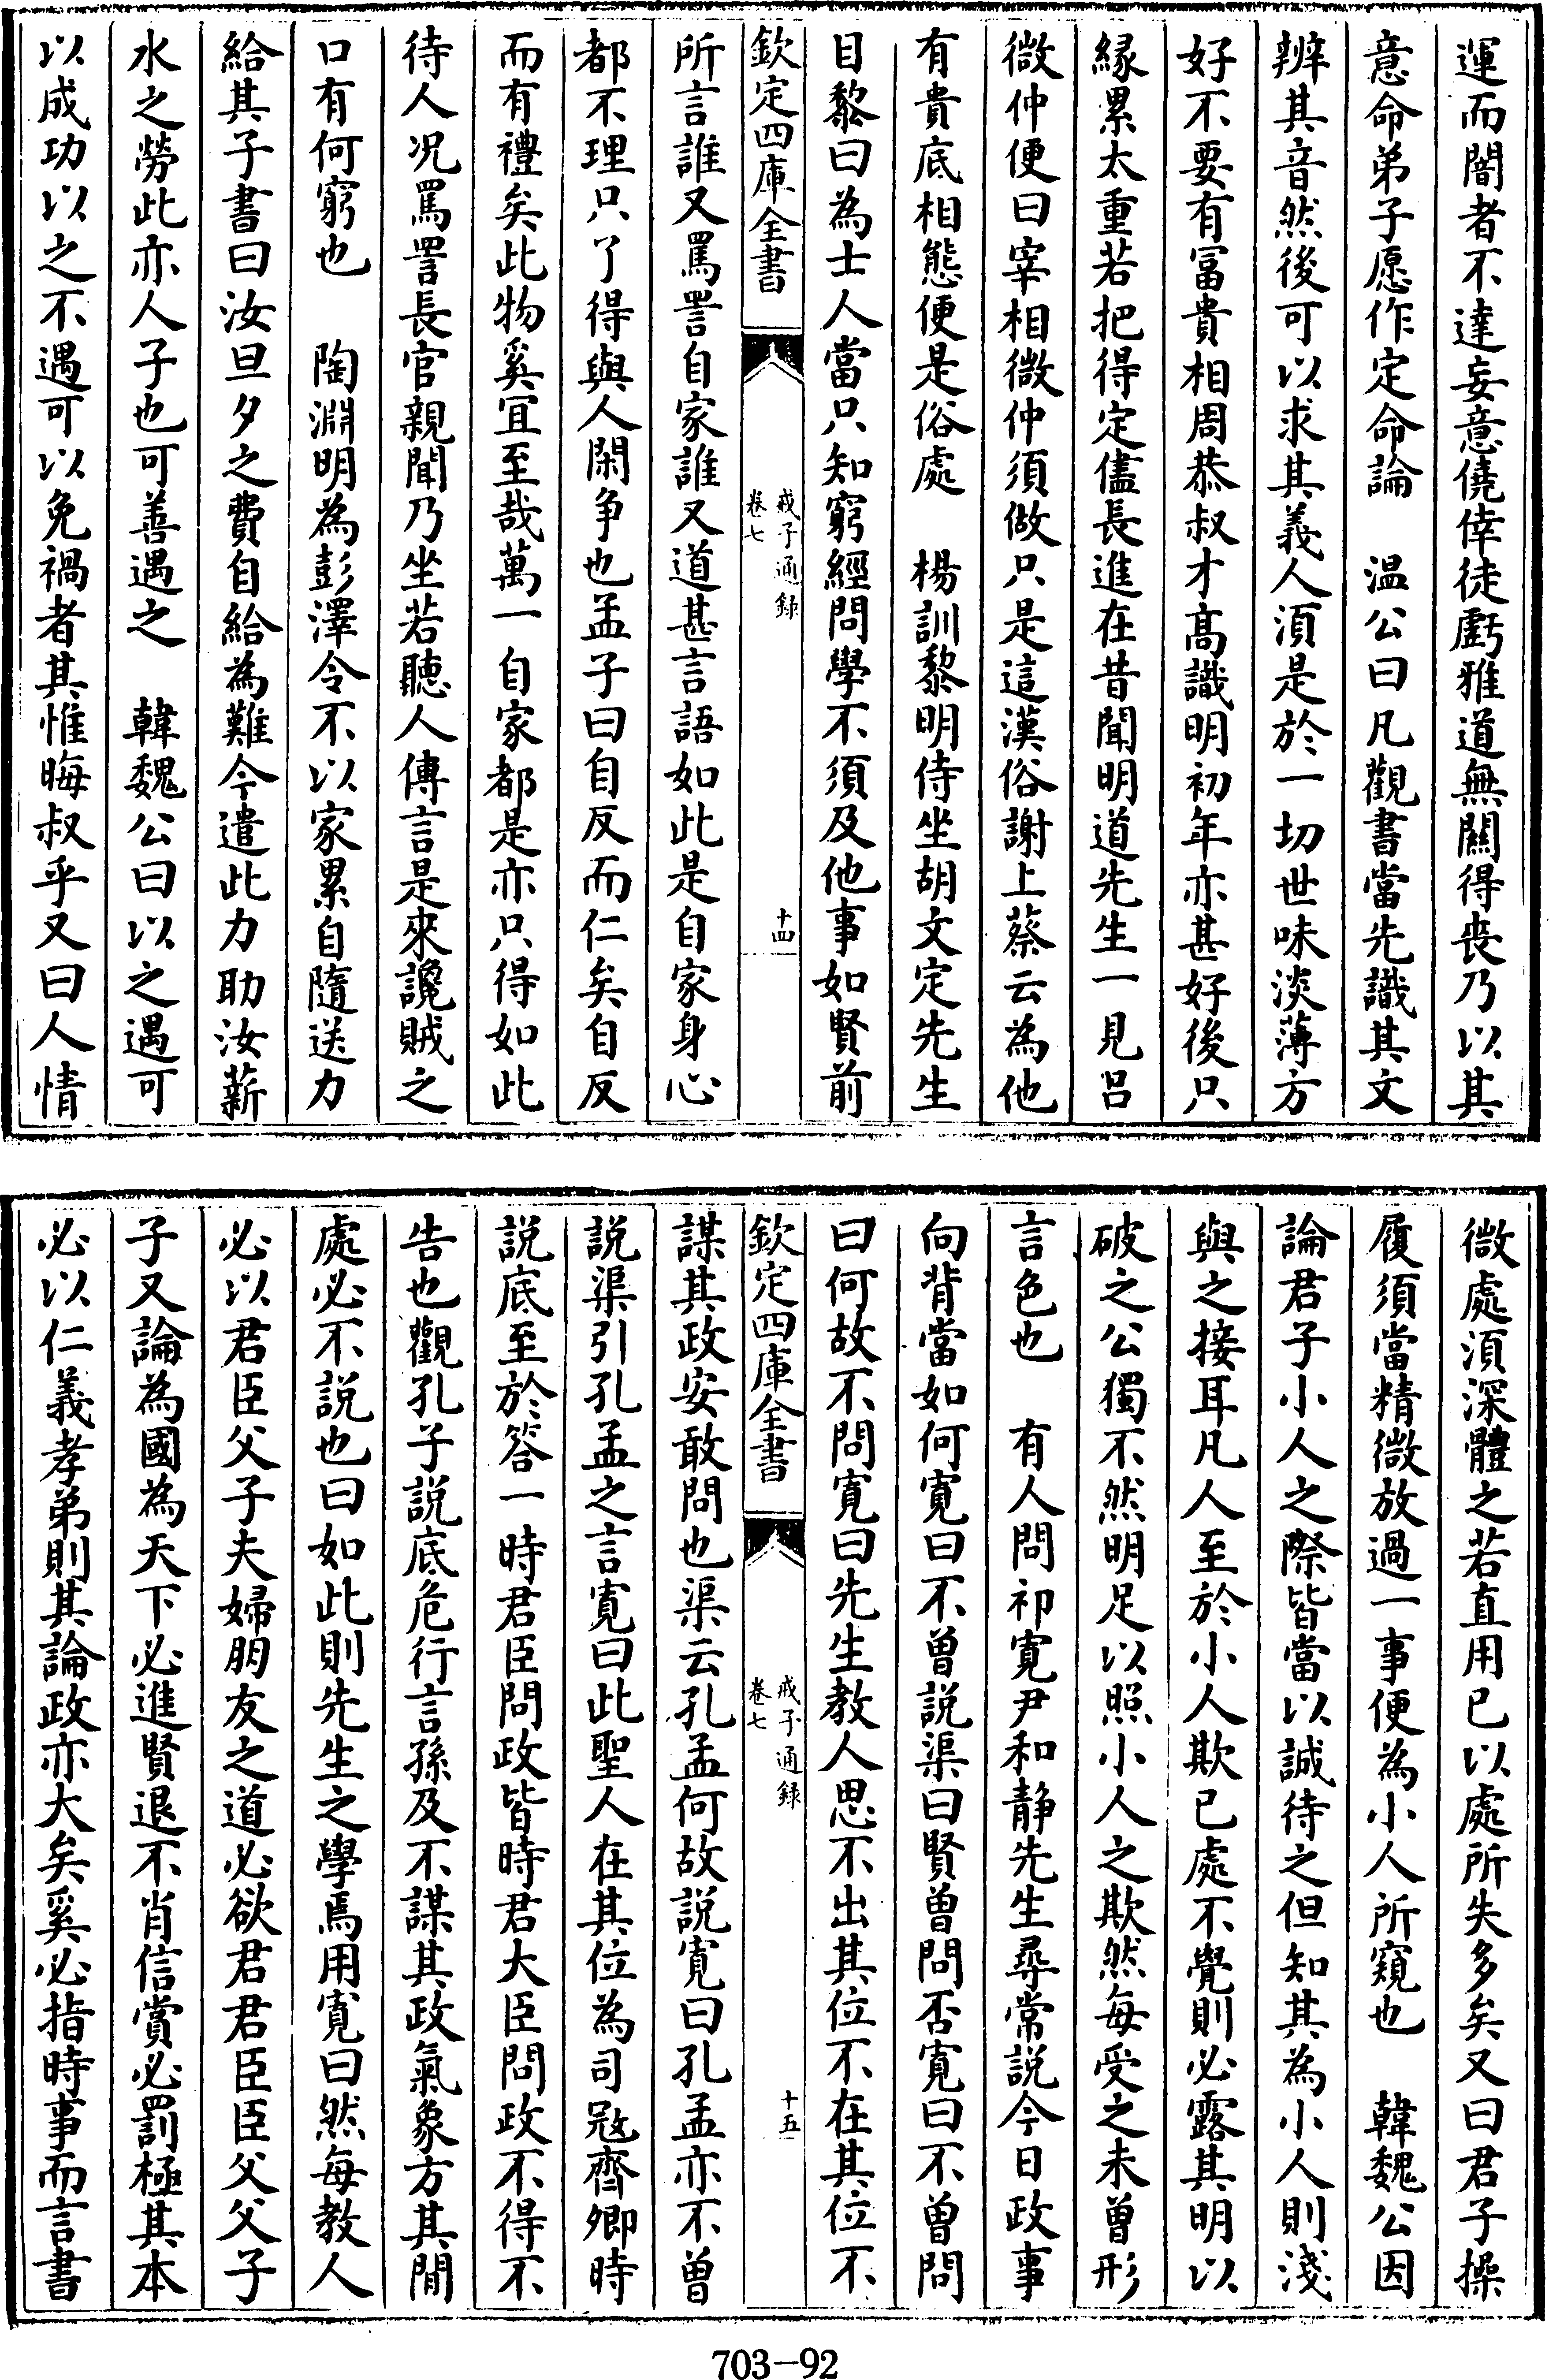 運而闇者不達妄意僥倖徒虧雅道無關得喪乃以其
意命弟子愿作定命論　温公曰凡觀書當先識其文
辨其音然後可以求其義人湏是於一切世味淡薄方
好不要有冨貴相周恭叔才髙識明初年亦甚好後只
縁累太重若把得定儘長進在昔聞明道先生一見吕
微仲便曰宰相微仲須做只是這漢俗謝上蔡云為他
有貴底相態便是俗處　楊訓黎明侍坐胡文定先生
目黎曰為士人當只知窮經問學不須及他事如賢前
欽定四庫全書
戒子通録
卷七
十四
所言誰又罵詈自家誰又道甚言語如此是自家身心
都不理只了得與人閑争也孟子曰自反而仁矣自反
而有禮矣此物奚宜至哉萬一自家都是亦只得如此
待人况罵詈長官親聞乃坐若聽人傳言是來讒賊之
口有何窮也　陶淵明為彭澤令不以家累自隨送力
給其子書曰汝旦夕之費自給為難今遣此力助汝薪
水之勞此亦人子也可善遇之　韓魏公曰以之遇可
以成功以之不遇可以免禍者其惟晦叔乎又曰人情
微處湏深體之若直用已以處所失多矣又曰君子操
履須當精微放過一事便為小人所窺也　韓魏公因
論君子小人之際皆當以誠待之但知其為小人則淺
與之接耳凡人至於小人欺已處不覺則必露其明以
破之公獨不然明足以照小人之欺然每受之未曾形
言色也　有人問祁寛尹和静先生尋常說今日政事
向背當如何寛曰不曾説渠曰賢曾問否寛曰不曾問
曰何故不問寛曰先生教人思不出其位不在其位不
欽定四庫全書
戒子通録
卷七
十五
謀其政安敢問也渠云孔孟何故説寛曰孔孟亦不曾
説渠引孔孟之言寛曰此聖人在其位為司冦齊卿時
説底至於答一時君臣問政皆時君大臣問政不得不
告也觀孔子説底危行言孫及不謀其政氣象方其閒
處必不説也曰如此則先生之學焉用寛曰然每教人
必以君臣父子夫婦朋友之道必欲君君臣臣父父子
子又論為國為天下必進賢退不肖信賞必罰極其本
必以仁義孝弟則其論政亦大矣奚必指時事而言書
703—92